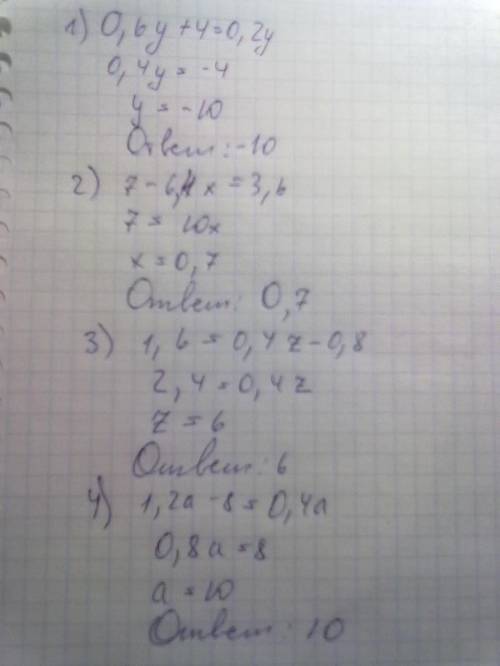 1) 0,6y+4=0,2y
0,4y=-4
y=-10
Ответ:-10
2) 7-6,4x=3,6
7=10x
x=0,7
Ответ: 0,7
3) 1,6=0,4z-0,8
2,4=0,4z
z=6
Ответ:6
4) 1,2a-8=0,4a
0,8a=8
a=10
Ответ: 10